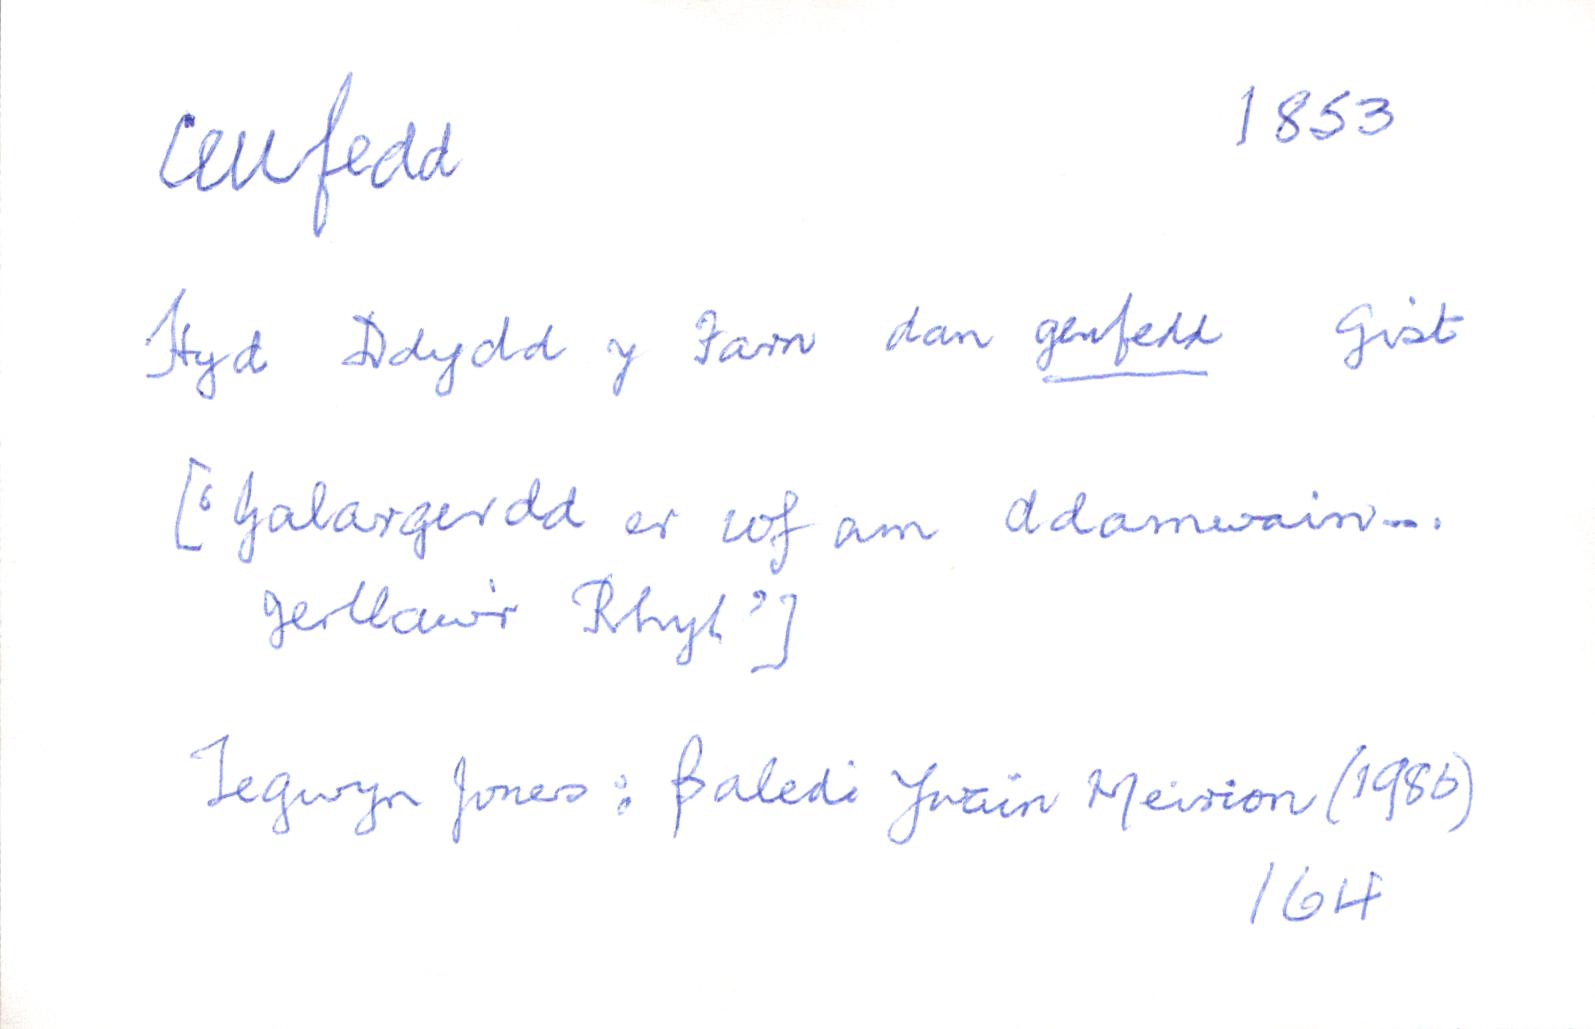 cenfedd 1853
Hyd Ddydd y Farn dan genfedd Gist
[‘Galargerdd er cof am ddamwain...
gerllaw'r Rhyl’]
Tegwyn Jones: Baledi Ywain Meirion (1980)
164